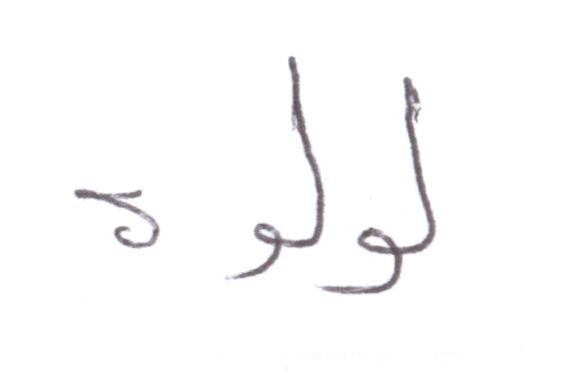 لولو ه